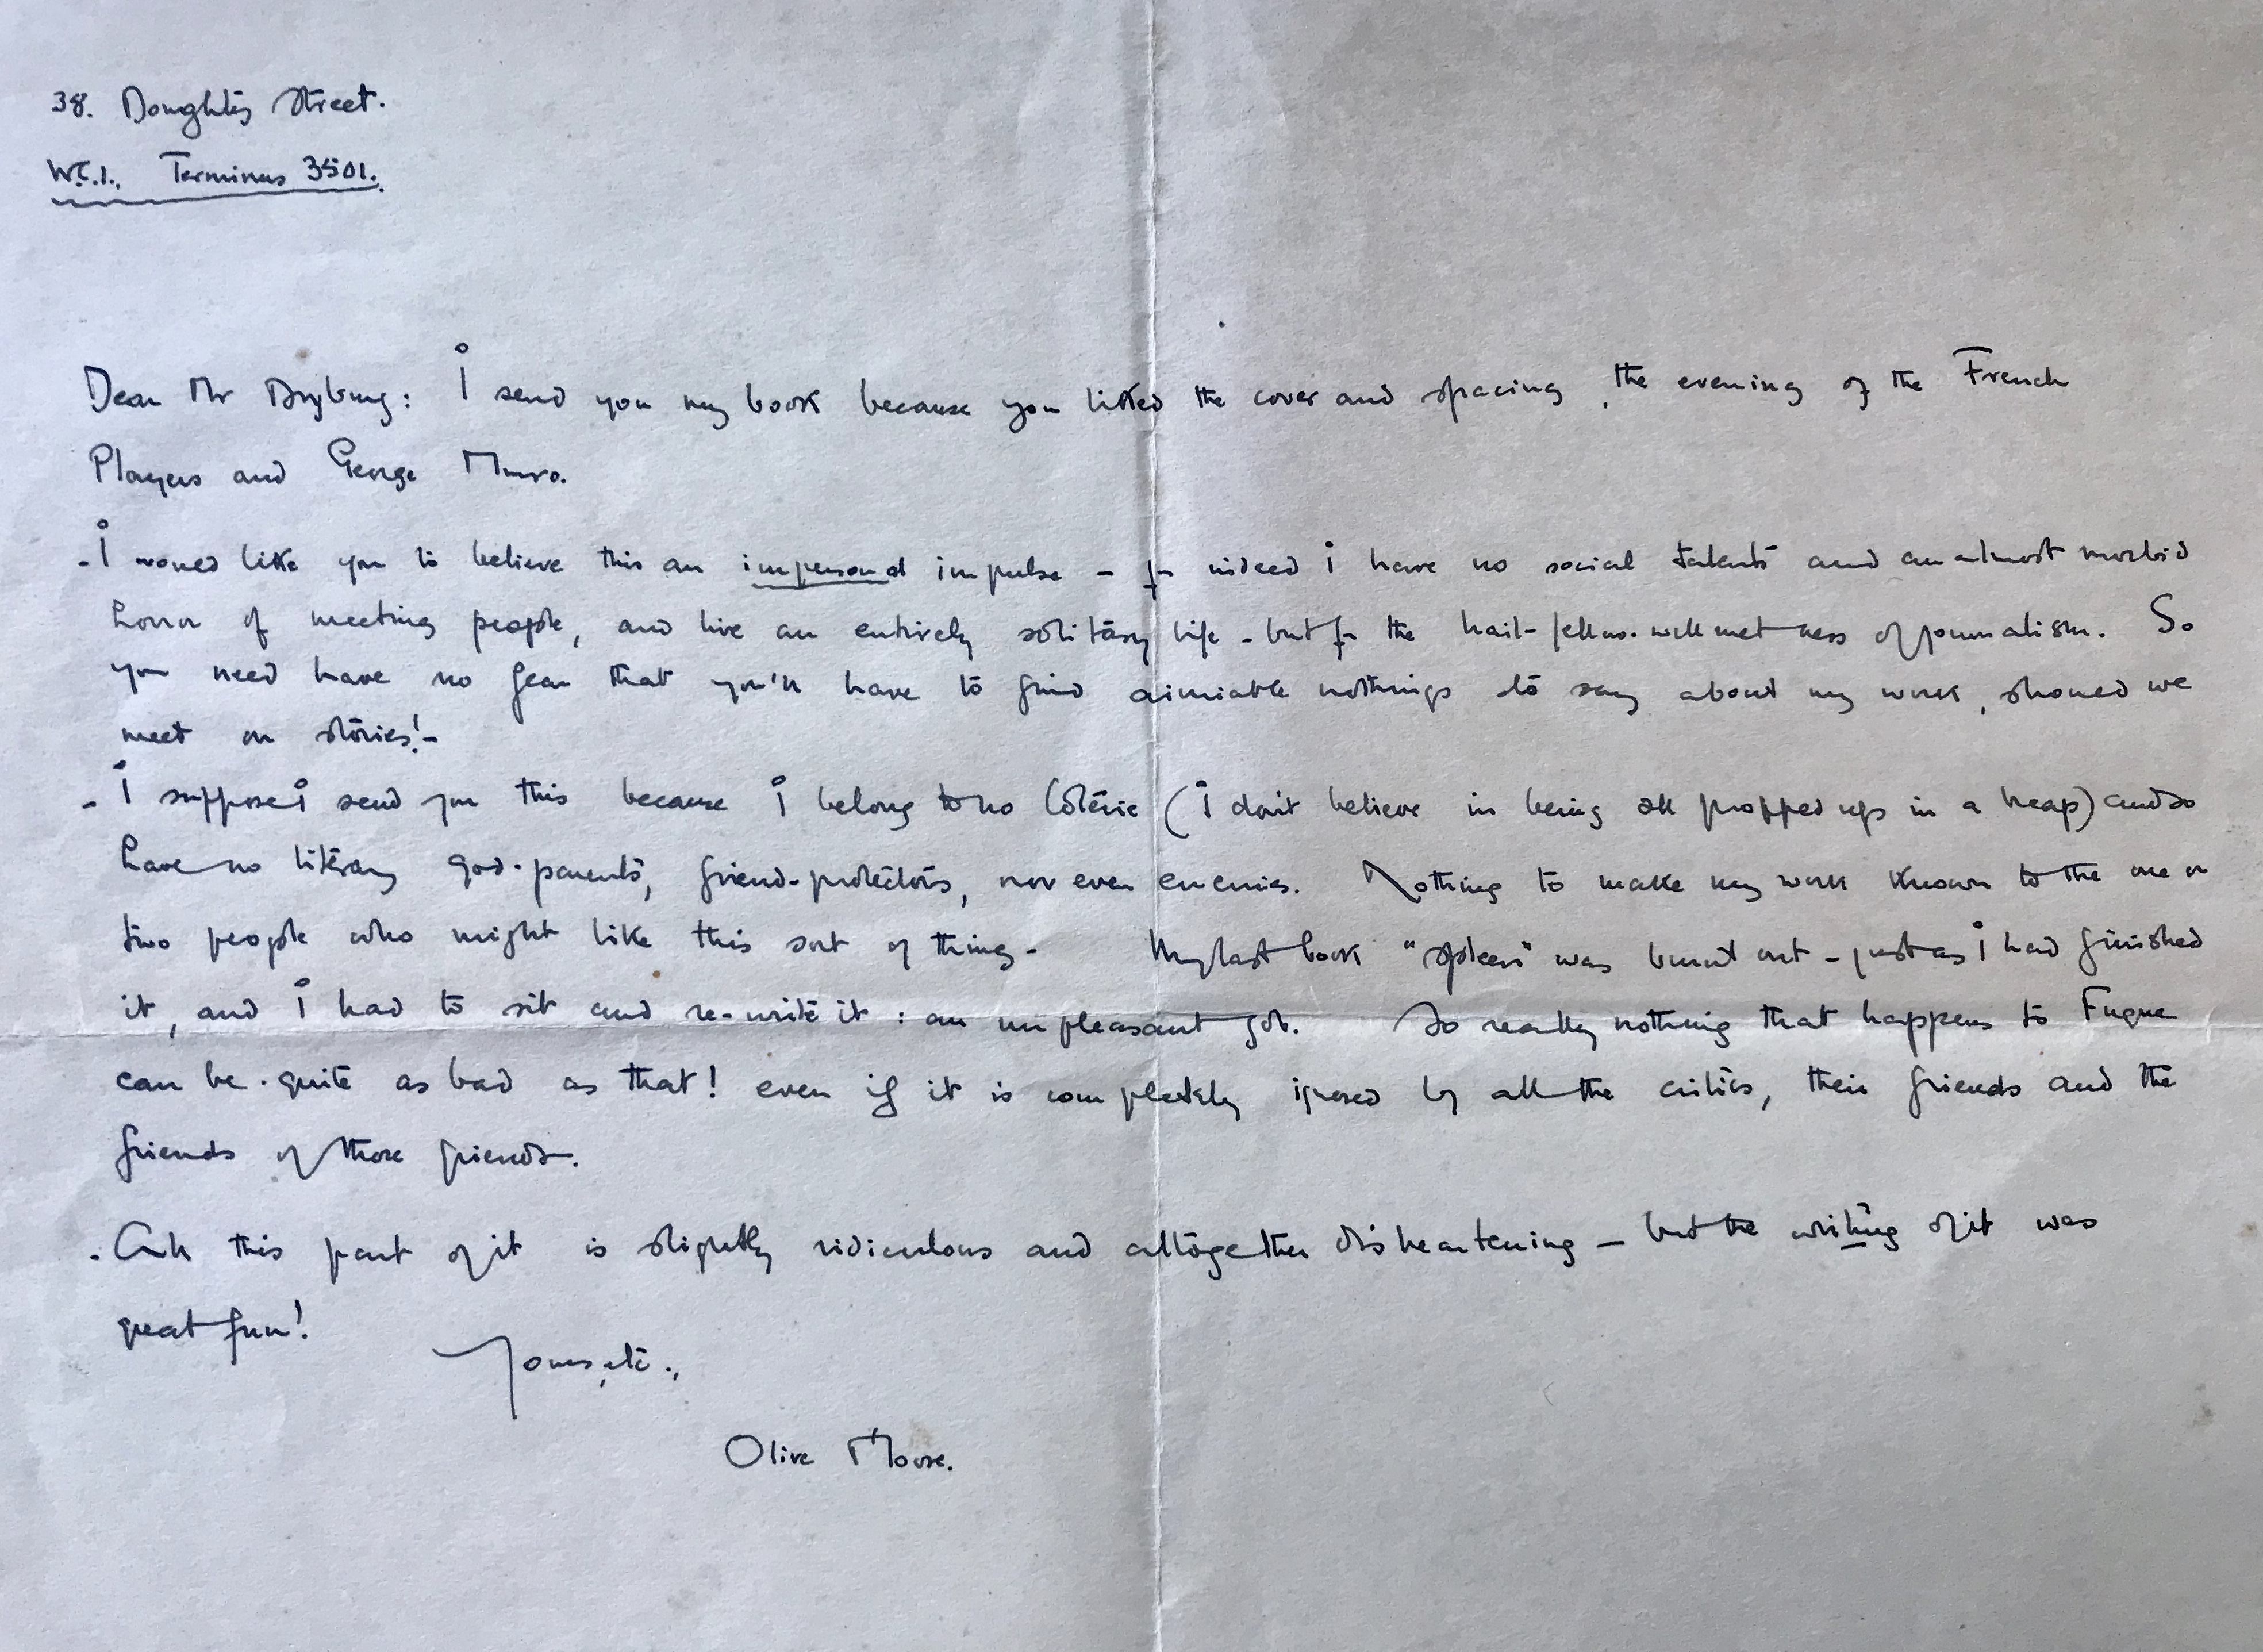 38. Doughty Street.
W.C.1., Terminus 3501.
Dear Mr Dryberg: I send you my book because you liked the cover and spacing, the evening of the French
Players and George Munro.
- I would like you to believe this an impersonal impulse - for indeed i have no social talents and an almost morbid
horror of meeting people, and live an entirely solitary life - but for the hail-fellow-well met ness of journalism. So
you need have no fear that you'll have to find aimiable nothings to say about my work, should we
meet on stories! -
- I suppose i send you this because I belong to no Côterie (I don't believe in being all propped up in a heap) and so
have no literary god-parents, friend-protectors, nor even enemies. Nothing to make my work known to the one or
two people who might like this sort of thing - My last book "Spleen" was burnt out - just as I had finished
it, and I had to sit and re-write it : an unpleasant job. So really nothing that happens to Fugue
can be quite as bad as that! even if it is completely ignored by all the critics, their friends and the
friends of those friends.
- All this part of it is slightly ridiculous and altogether disheartening - but the writing of it was
great fun!
Yours, etc.,
Olive Moore.